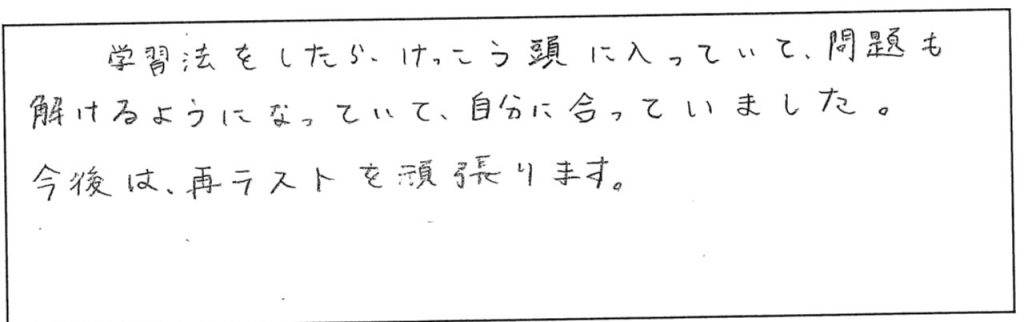 学習法をしたら、けっこう頭に入っていて、問題も
解けるようになっていて、自分に合っていました。
今後は、再テストを頑張ります。